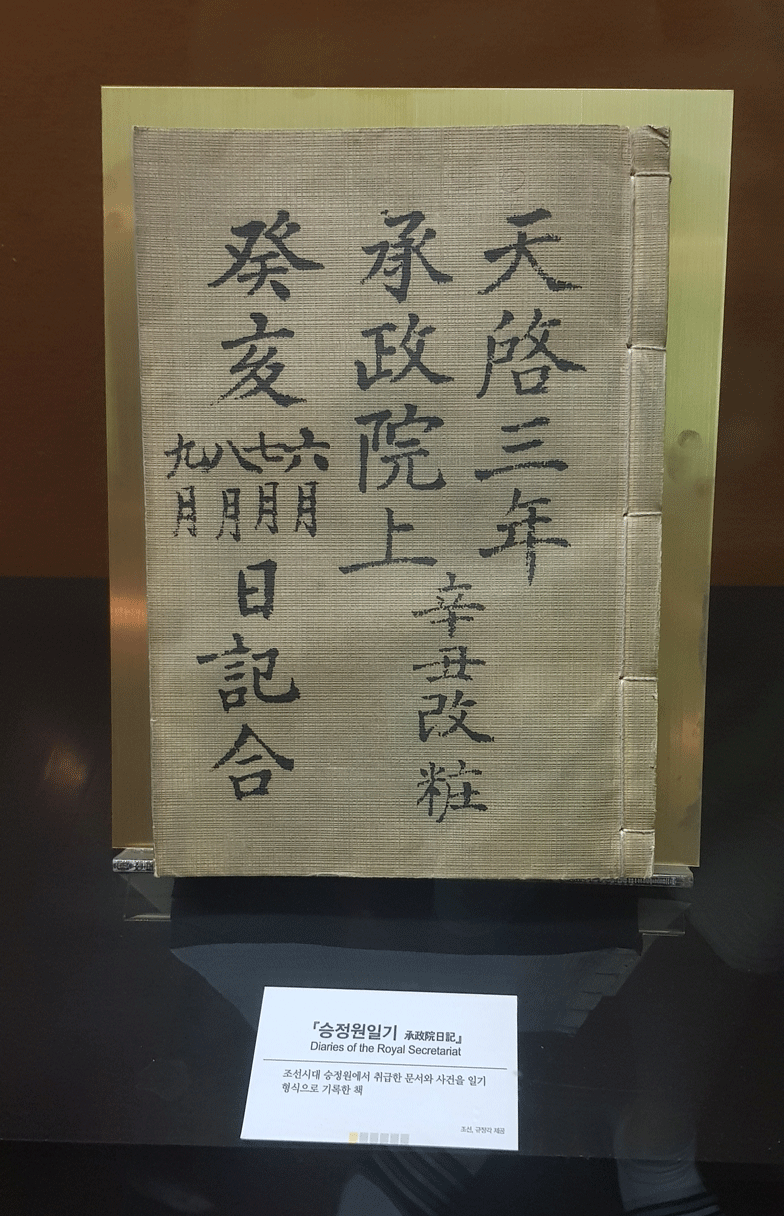 天啓三年
承政院上
辛丑改粧
癸亥
六月
七月
八月
九月
日記合
『승정원일기 承政院日記』
Diaries of the Royal Secretariat
조선시대 승정원에서 취급한 문서와 사건을 일기
형식으로 기록한 책
조선, 규장각 제공